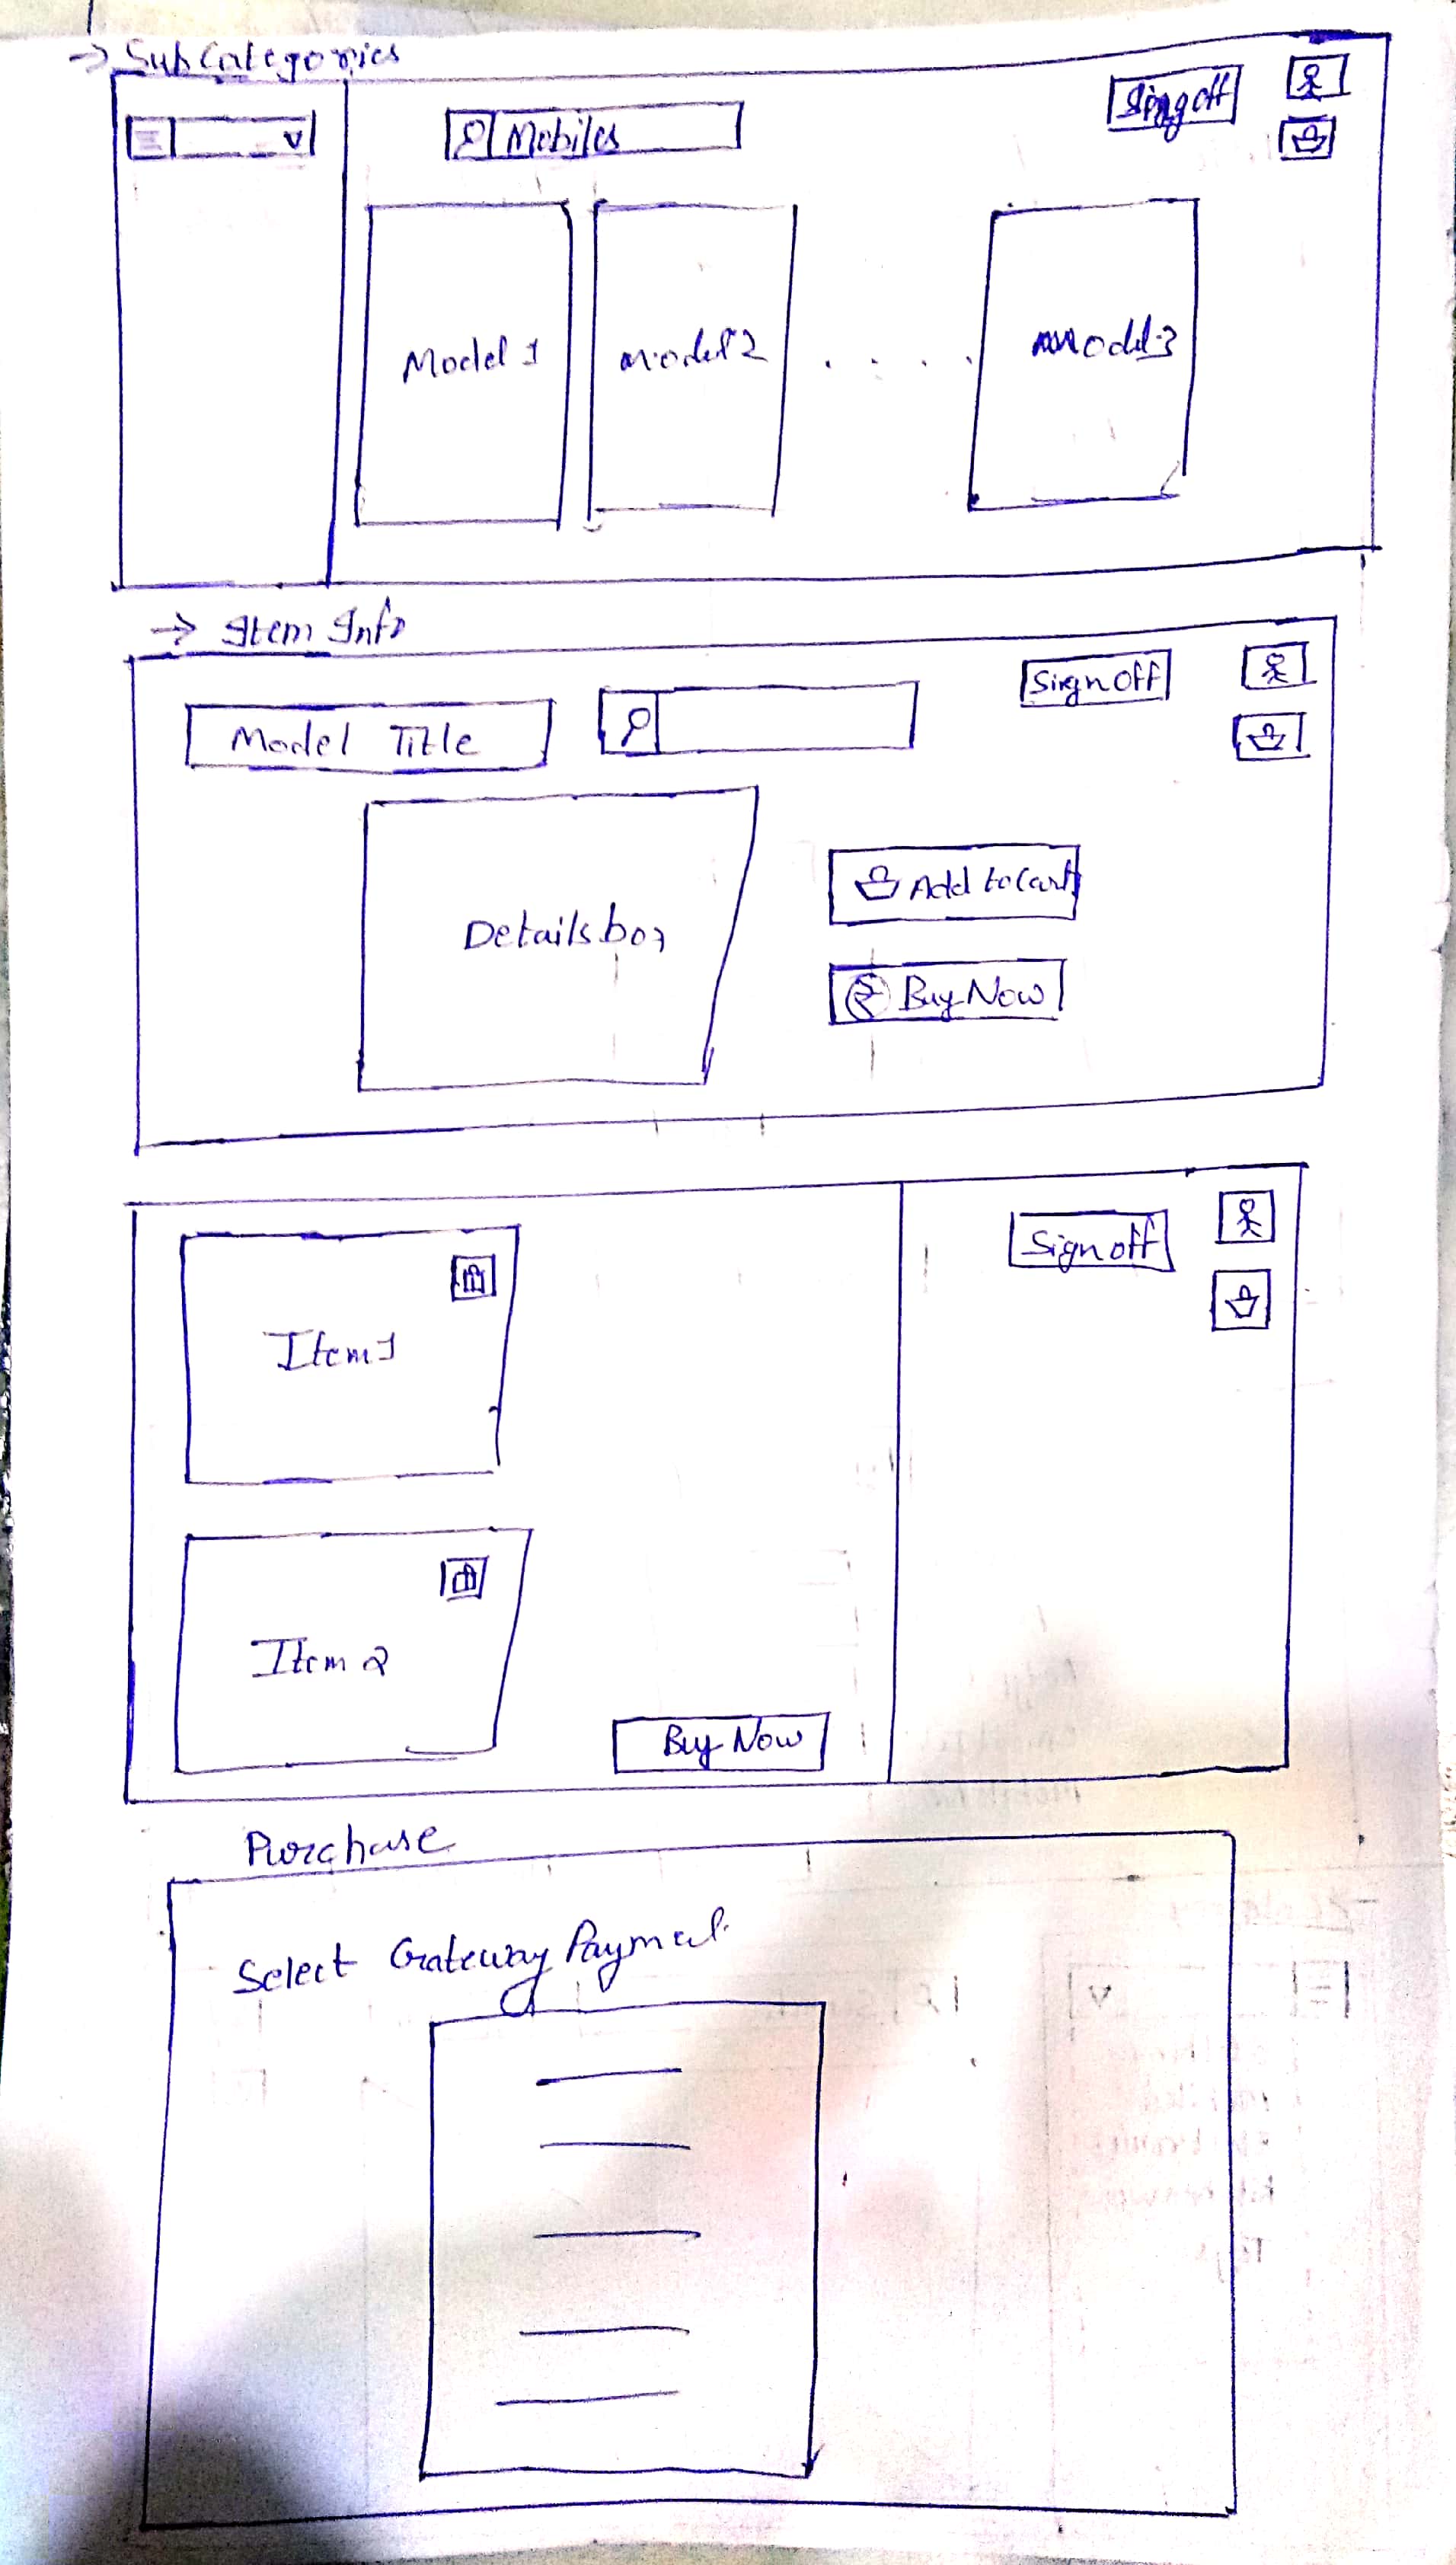 → SubCategories
Sign off
Mobiles
Model 1
model 2
. . . .
model 3
→ Item Info
Sign Off
Model Title
Details box
Add to Cart
₹ Buy Now
Sign off
Item 1
Item 2
Buy Now
Purchase
Select Gateway Payment